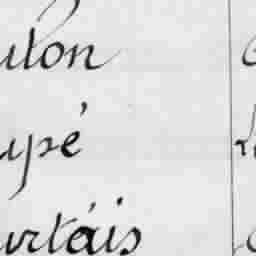 uton
upé
urtais